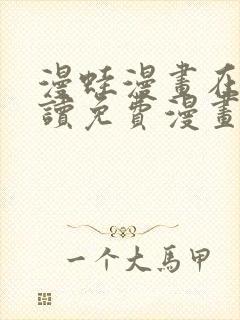 漫蛙漫畫在
讀免費漫畫
一个大馬甲